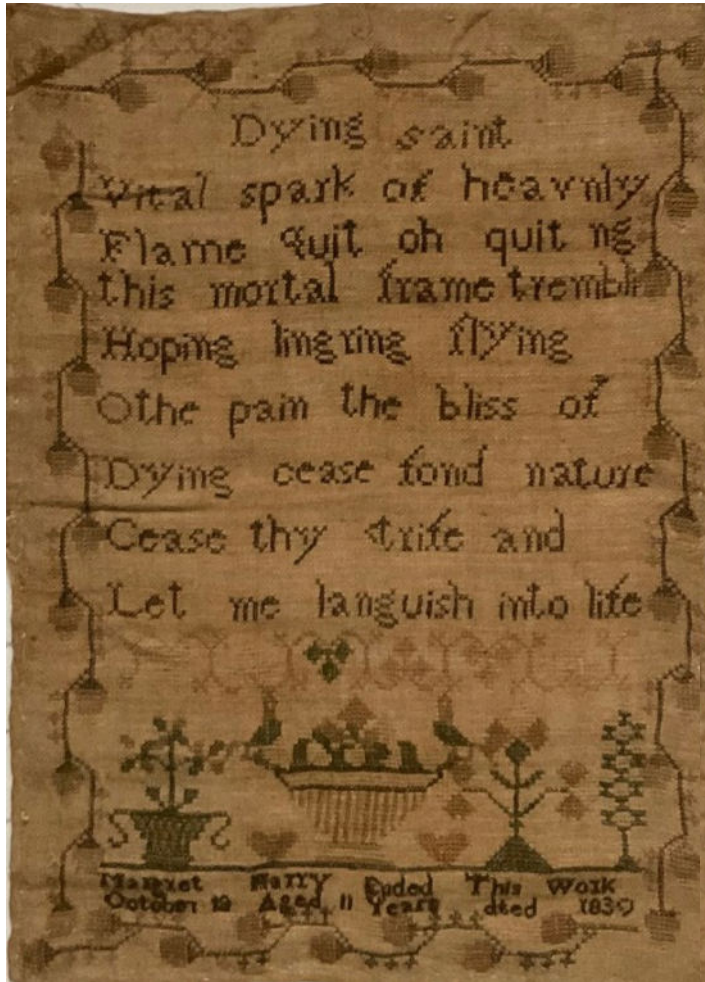 Dying saint
Vital spark of heavnly
Flame quit oh quit ng
this mortal frame trembli
Hoping lingring flying
O the pain the bliss of
Dying cease fond nature
Cease thy strife and
Let me languish into life
Margret Harry Ended This Work
October 18 Aged 11 Years dted 1839